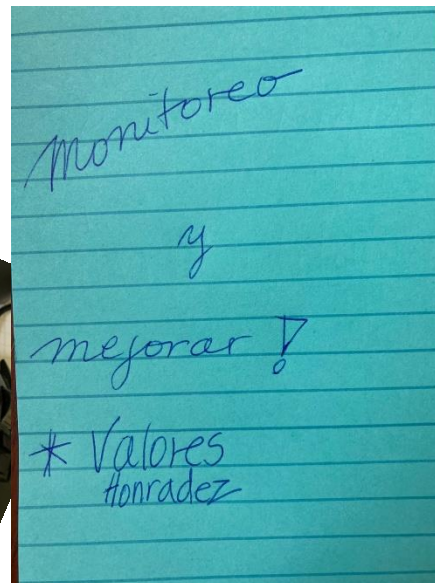 Monitoreo
y
mejorar!
* Valores
Honradez